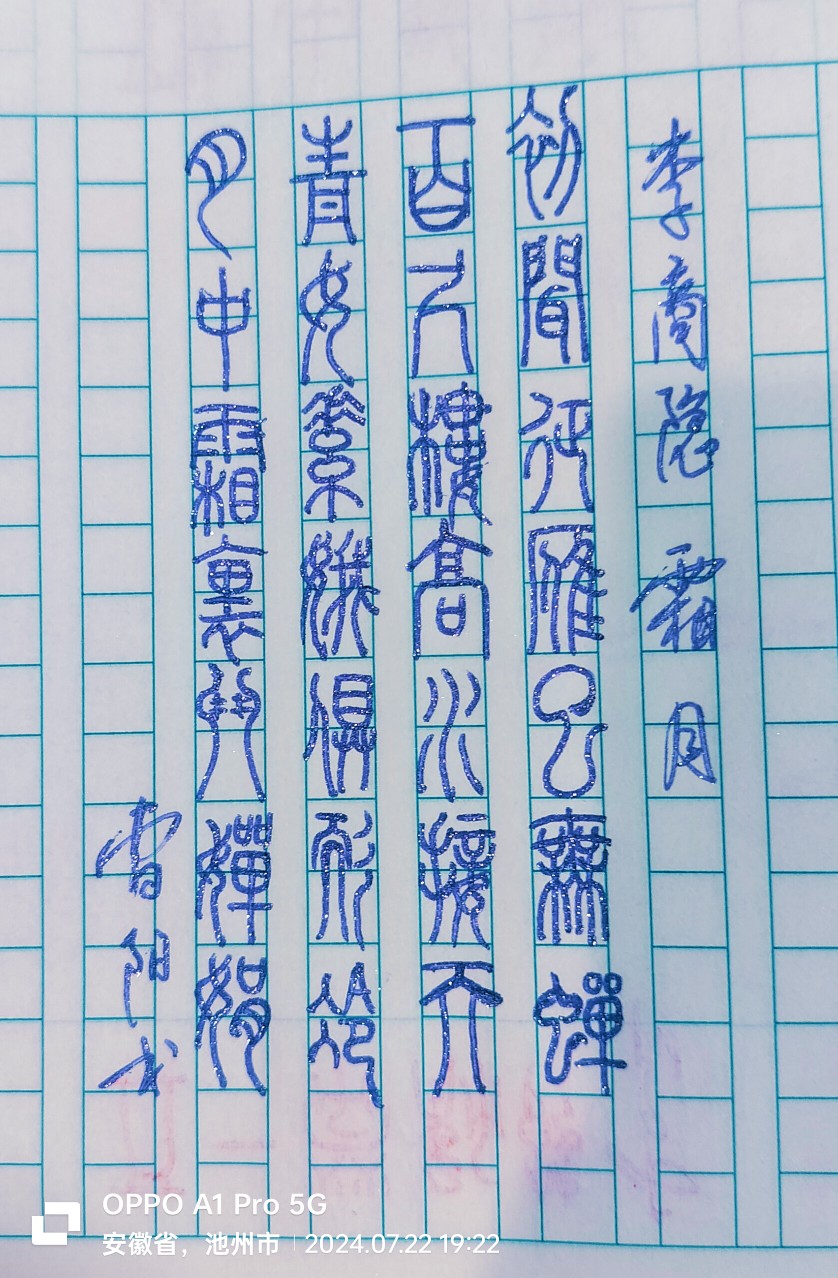 李商隐 霜月
初聞征雁已無蟬
百尺樓高水接天
青女素娥俱耐冷
月中霜裏鬥嬋娟
阳书
OPPO A1 Pro 5G
安徽省，池州市 | 2024.07.22 19:22